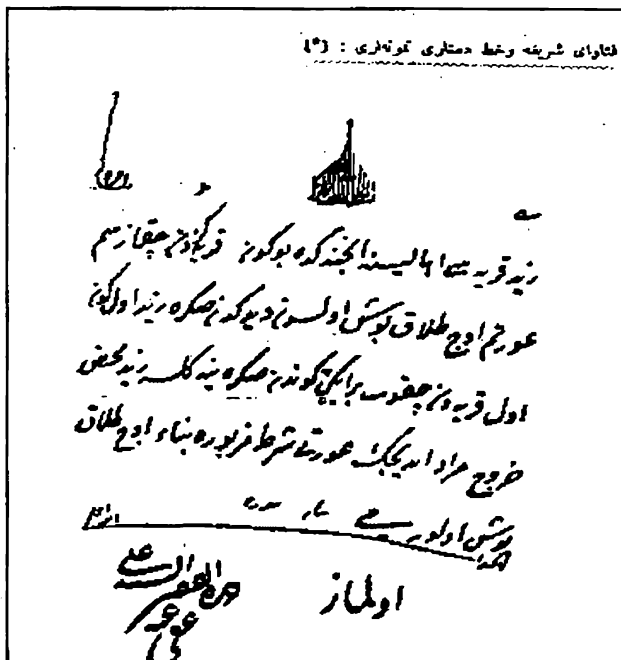 فتاوای شریفه وخط دستاری نمونه‌لری : ٣*٤
زید قریه سی اهالیسندن انجنه‌رک بوکون قریه‌کزدن چیقمازسم
عورتم اوچ طلاق بوش اولسون دیدکدن صکره زید اول کون
اول قریه‌دن چیقوب برایکی کوندن صکره ینه کلسه زید محض
خروج مراد ایدیجک عورتی شرط مزبوره بناء اوچ طلاق
بوش اولور می
اولماز
السید علی
عفی عنه